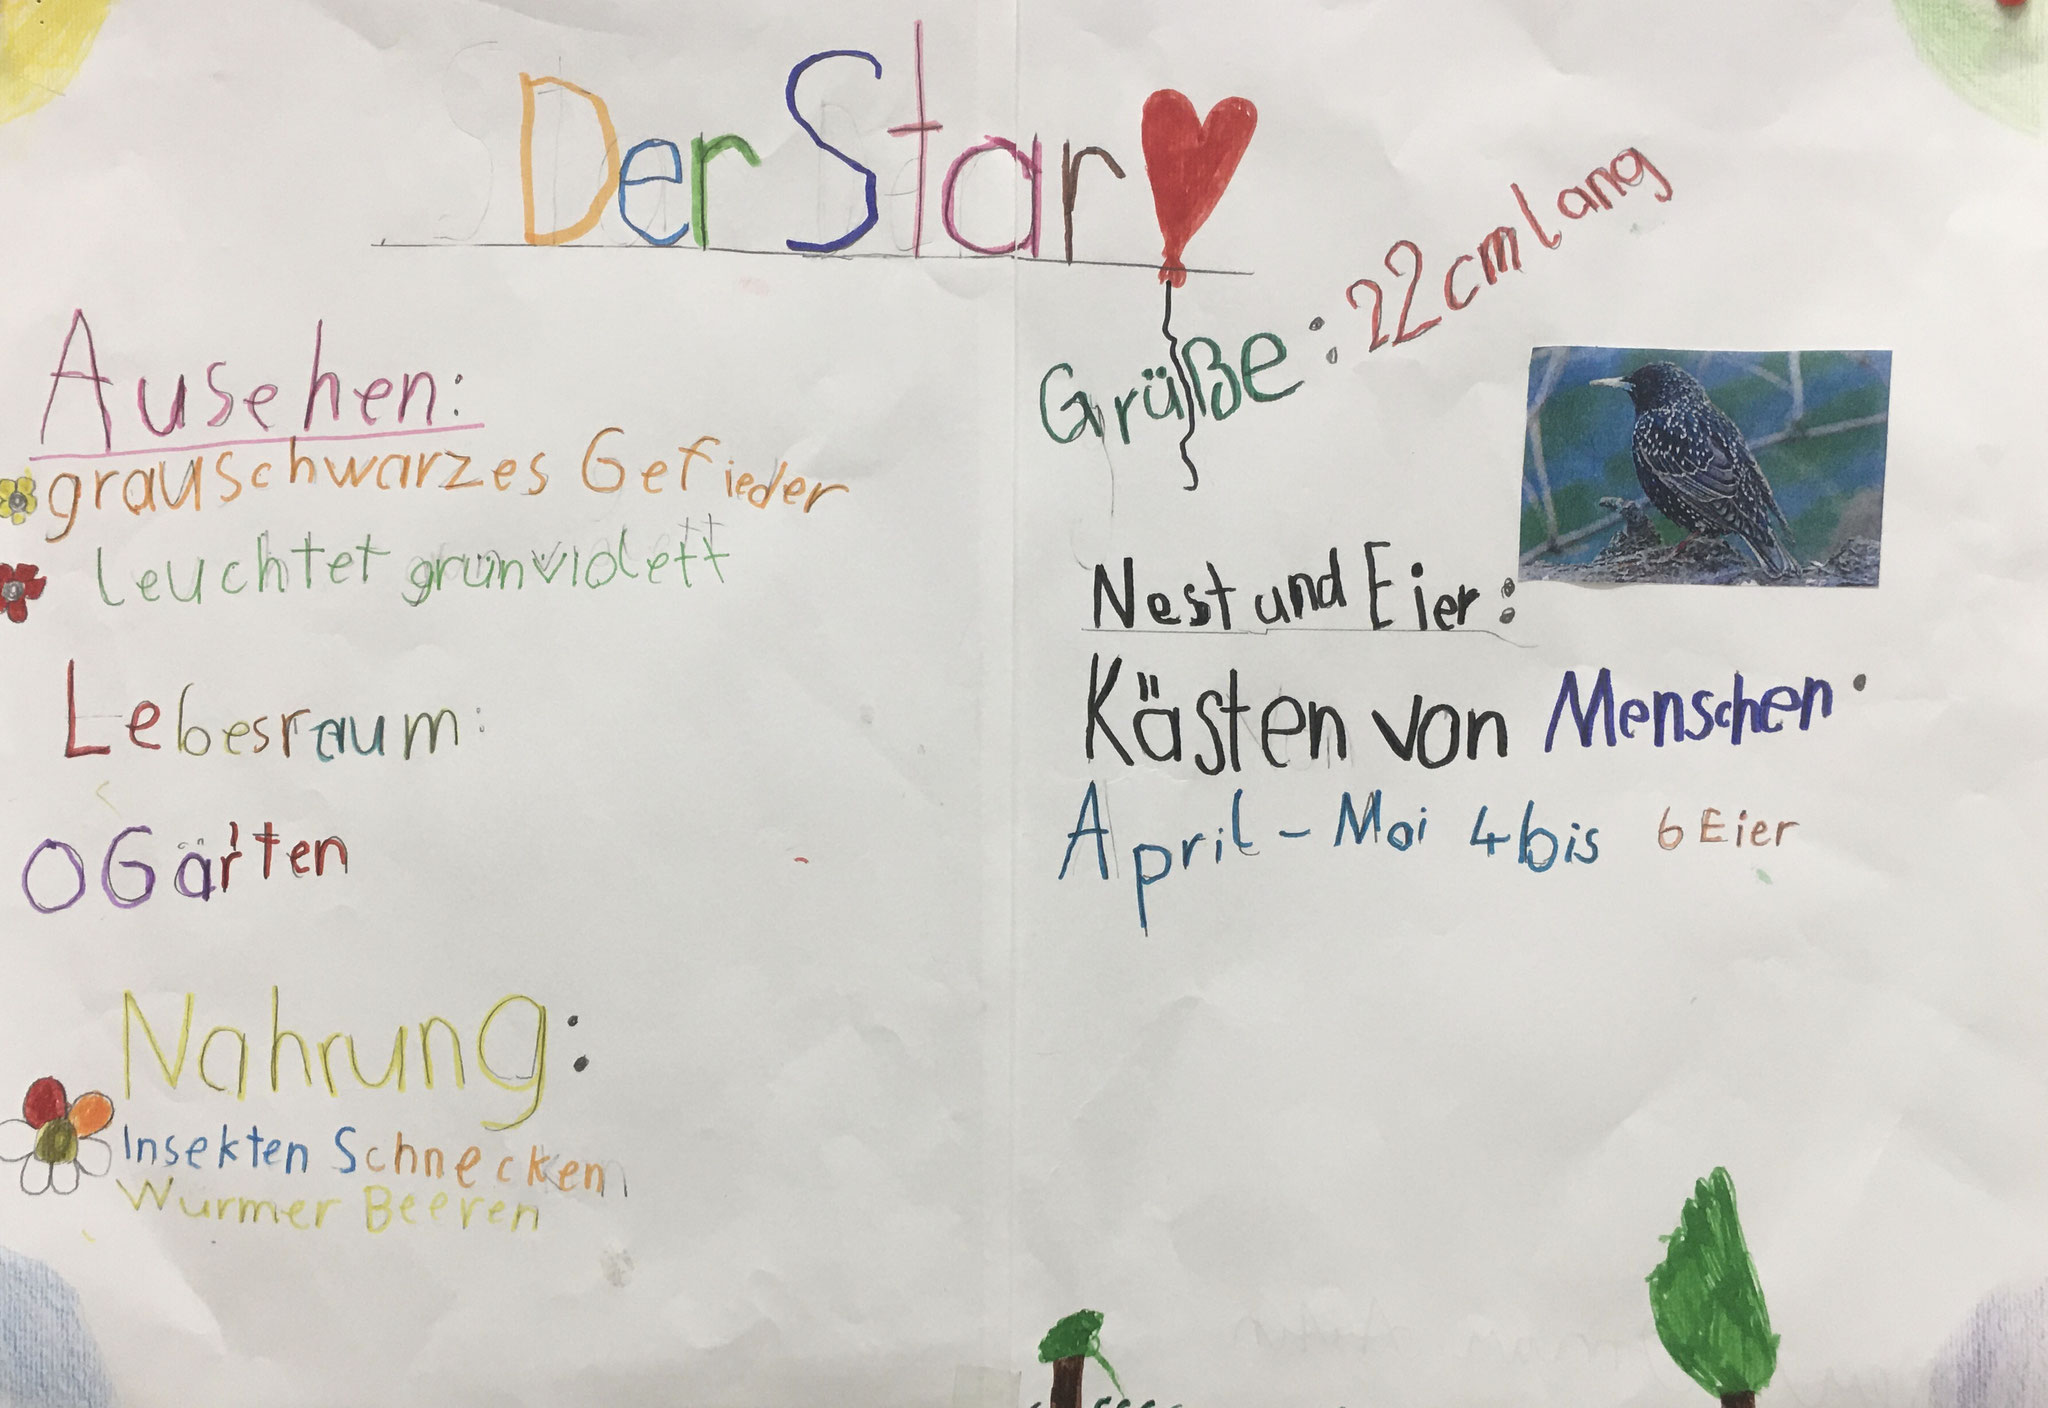 Der Star
Aussehen:
grauschwarzes Gefieder
leuchtet grünviolett
Lebesraum:
O Gärten
Nahrung:
Insekten Schnecken
Würmer Beeren
Grüße: 22 cm lang
Nest und Eier:
Kästen von Menschen.
April - Mai 4 bis 6 Eier